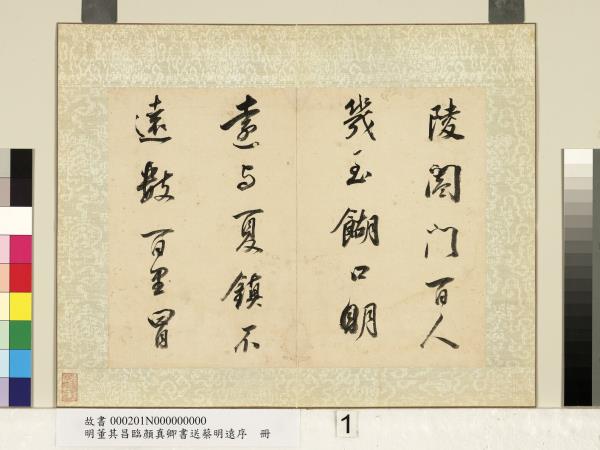 陵闔門百人
幾至餬口明
遠与夏鎮不
遠數百里冒
故書 000201N000000000
明董其昌臨顏真卿書送蔡明遠序 冊
1